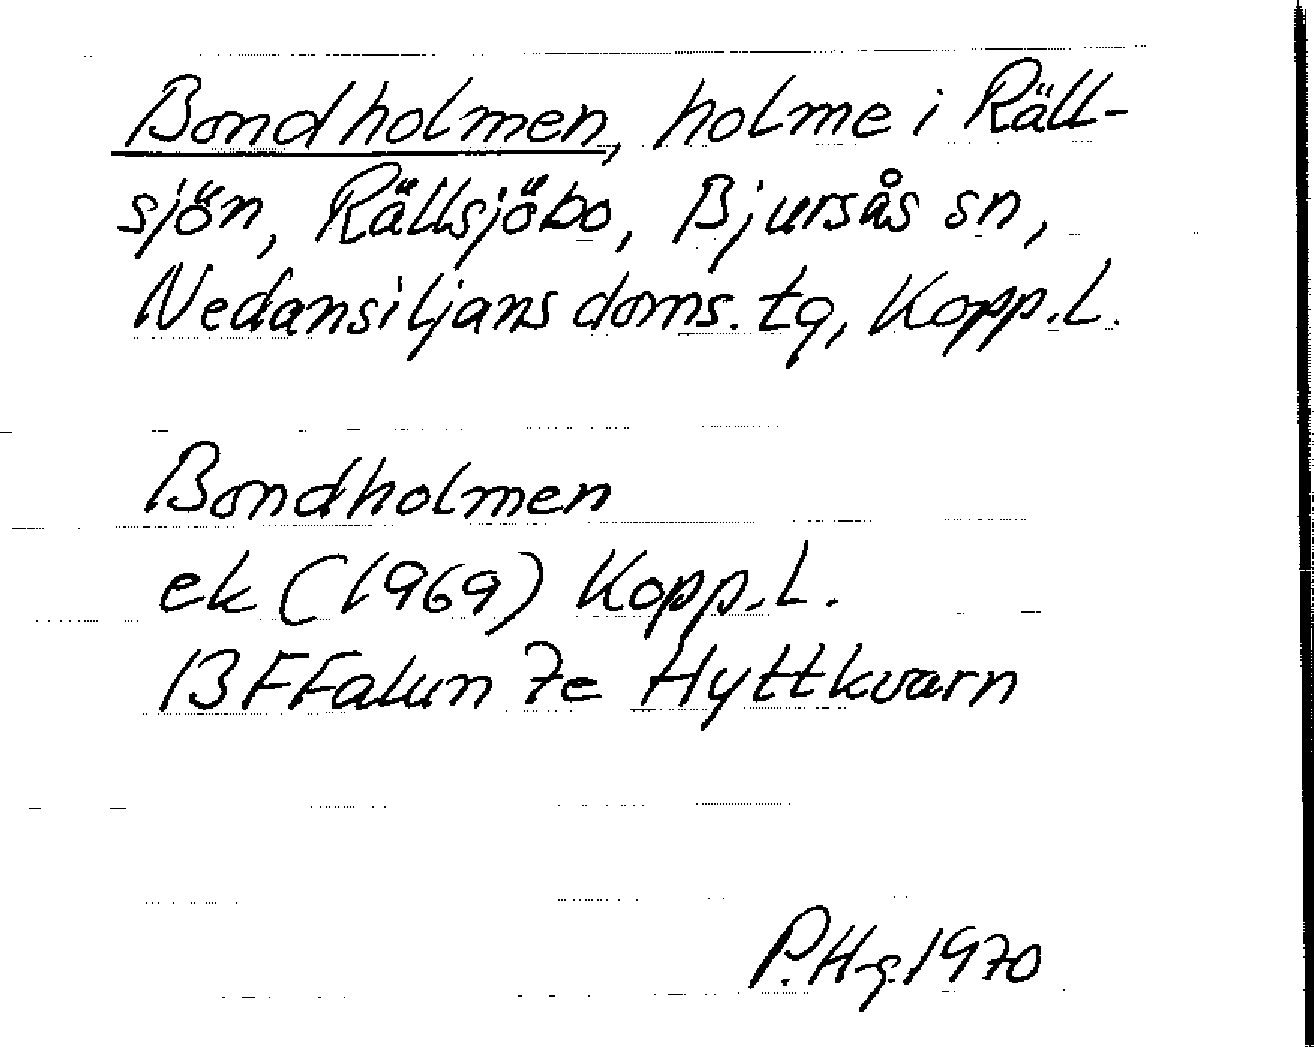 Bondholmen, holme i Räll-
sjön, Rällsjöbo, Bjursås sn,
Nedansiljans doms. tg, Kopp. l.
Bondholmen
ek (1969) Kopp. l.
13 F Falun 7e Hyttkvarn
P. H-g. 1970